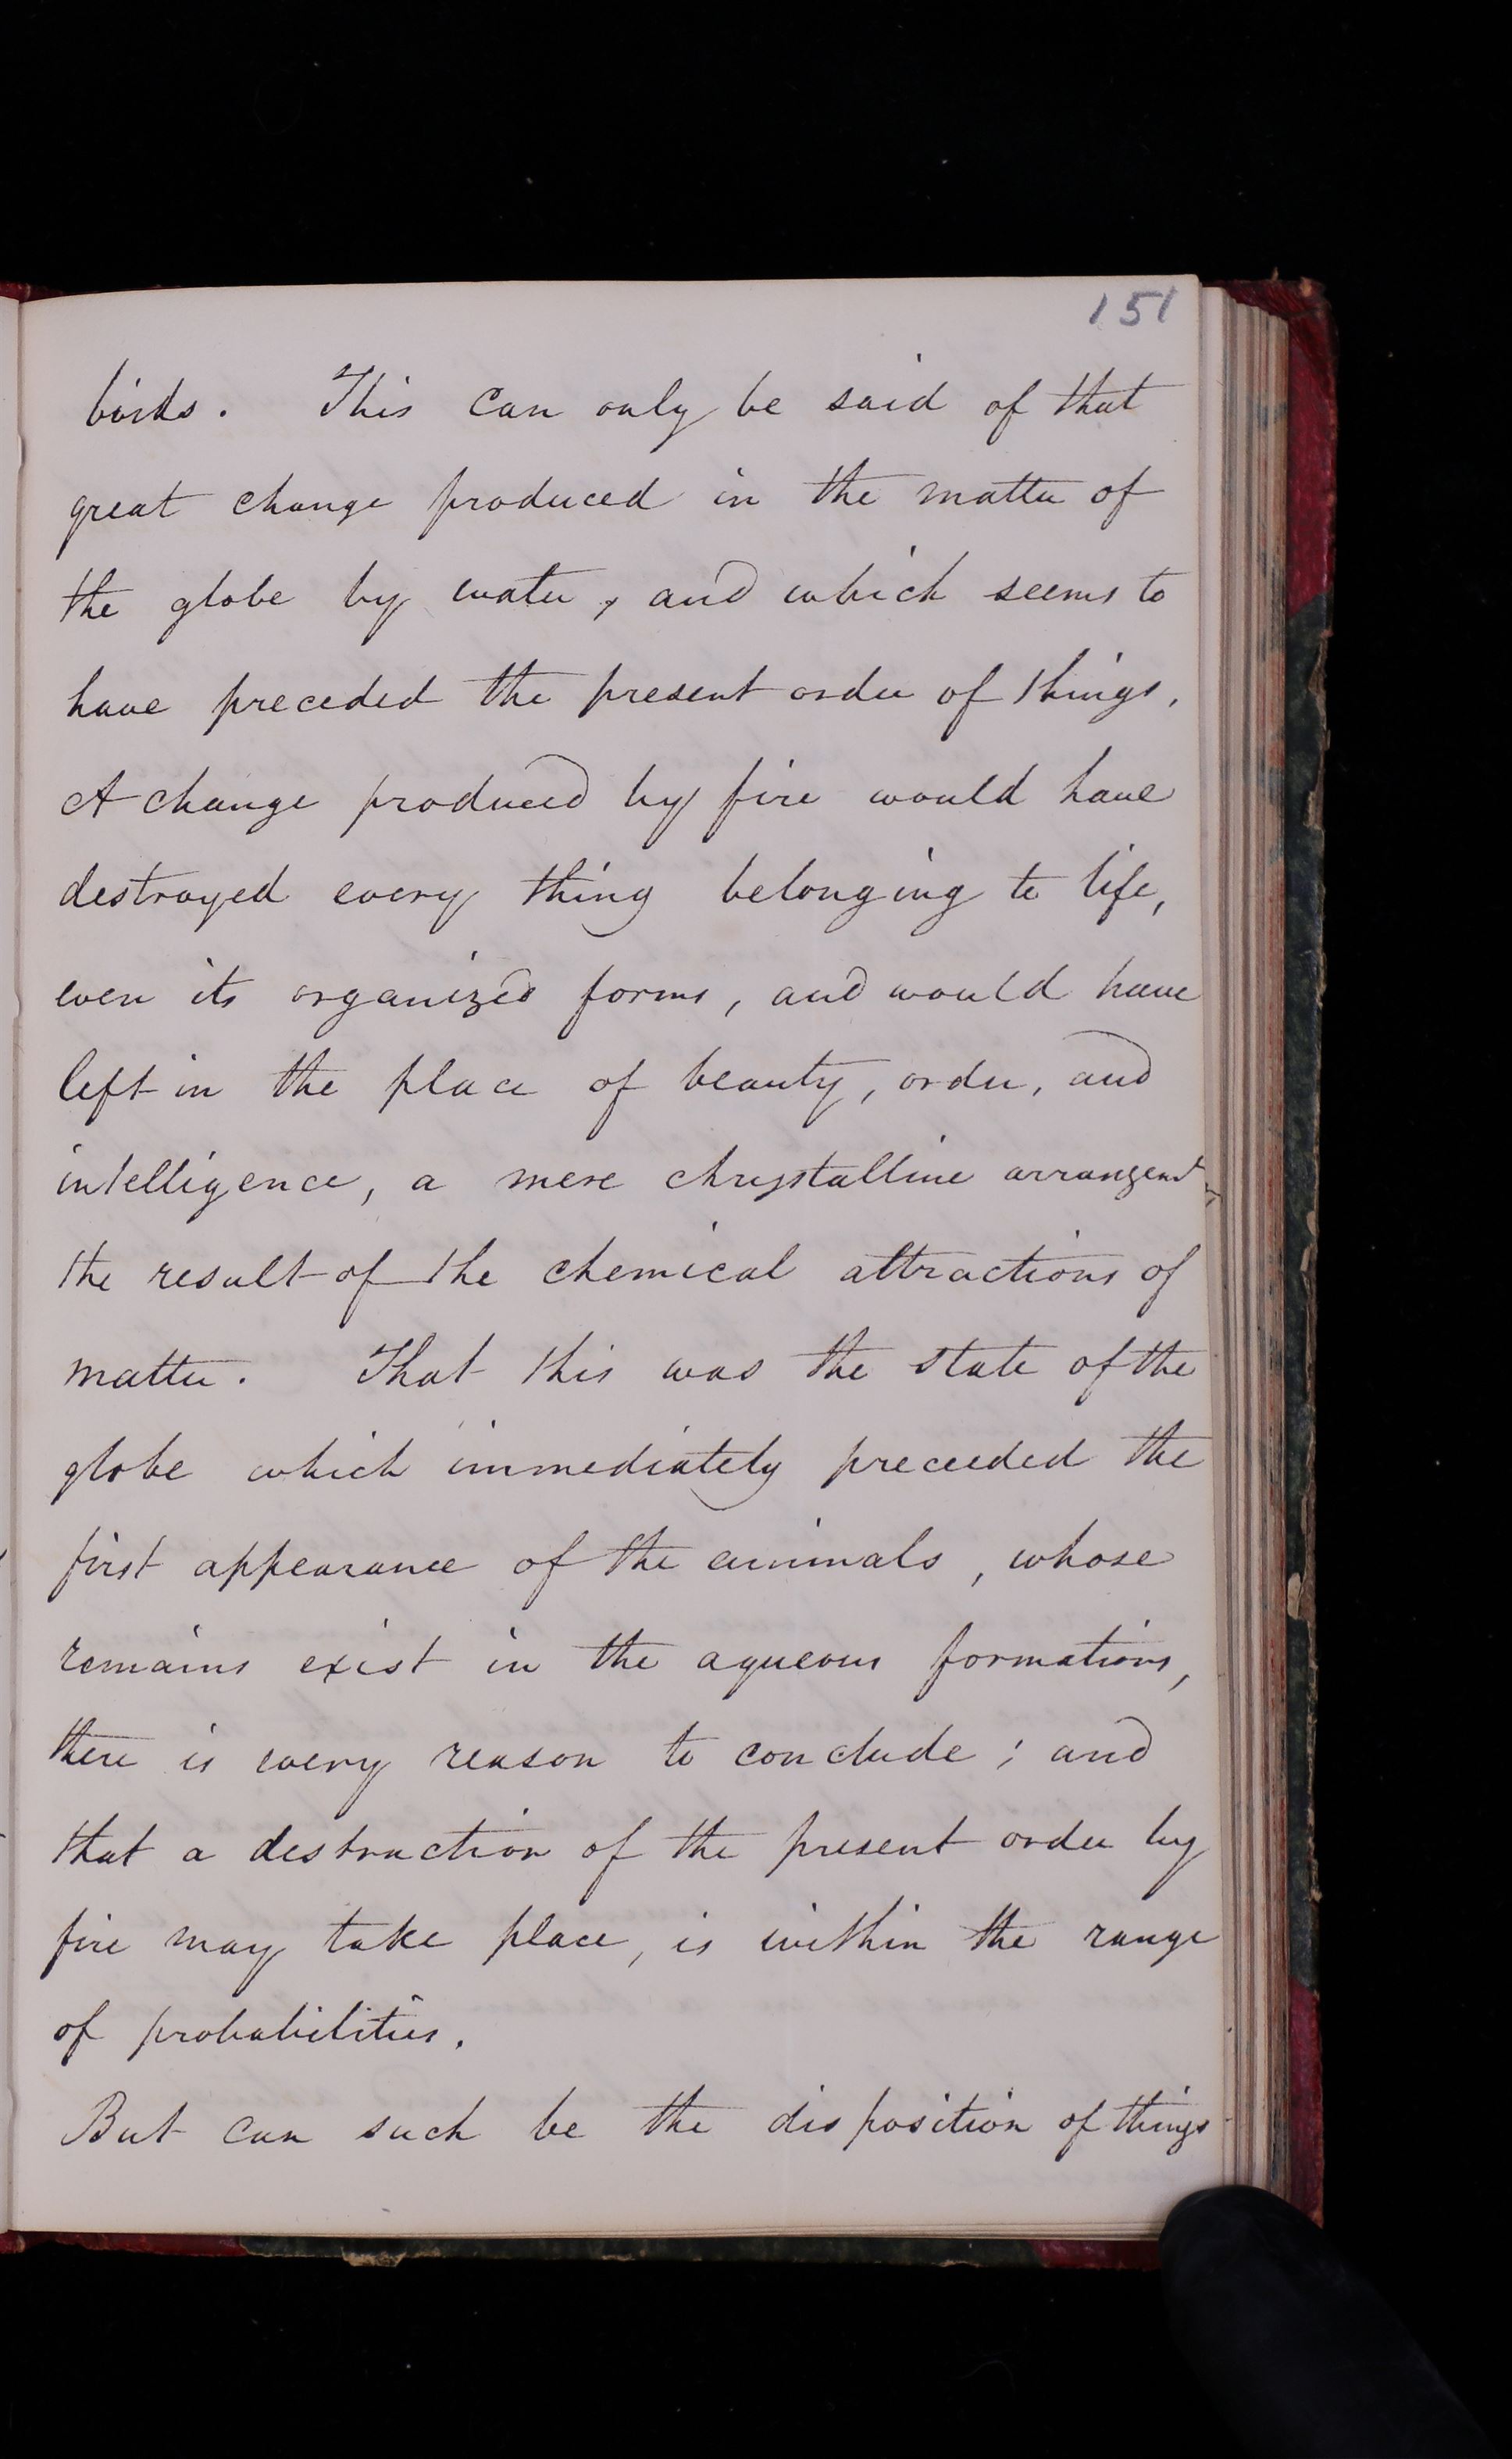 151
birds. This can only be said of that
great change produced in the matter of
the globe by water, and which seems to
have preceded the present order of things.
A change produced by fire would have
destroyed every thing belonging to life,
even its organized forms, and would have
left in the place of beauty, order, and
intelligence, a mere chrystalline arrangent
the result of the chemical attractions of
matter. That this was the state of the
globe which immediately preceeded the
first appearance of the animals, whose
remains exist in the aqueous formations,
there is every reason to conclude; and
that a destruction of the present order by
fire may take place, is within the range
of probabilities.
But can such be the disposition of things